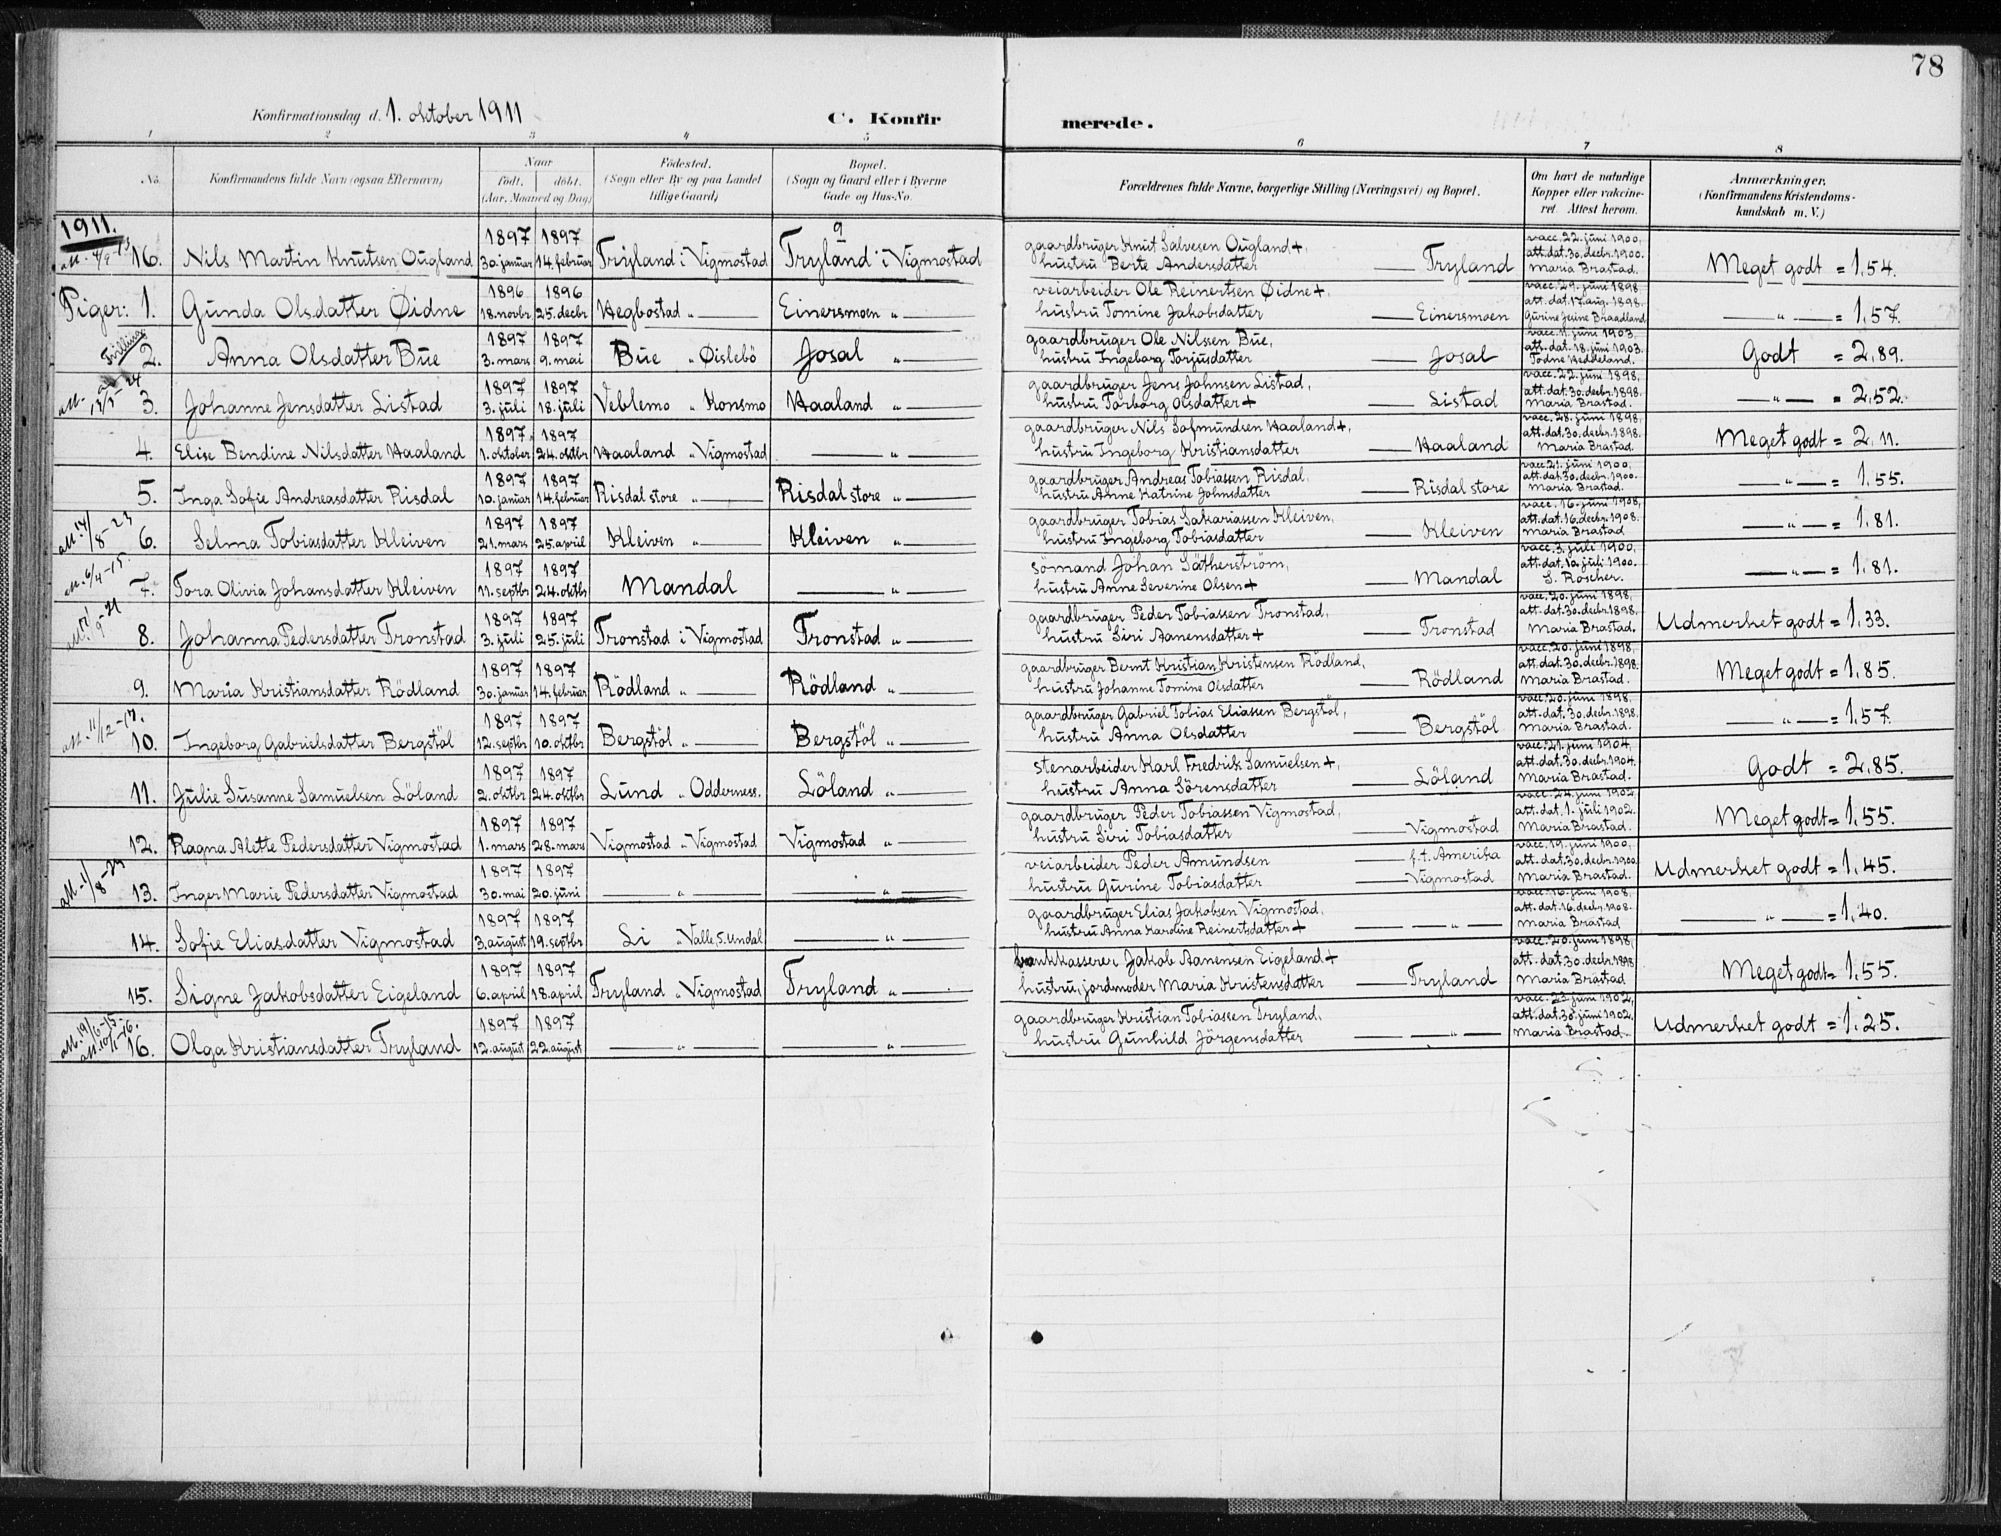 78
Konfirmationsdag d. 1. oktober 1911
C. Konfir merede.
1 2 3 4 5 6 7 8
No. Konfirmandens fulde Navn (ogsaa Efternavn) Naar födt. döbt. (Aar, Maaned og Dag) Födested. (Sogn eller By og paa Landet tillige Gaard) Bopæl. (Sogn og Gaard eller i Byerne Gade og Hus-No. Forældrenes fulde Navne, borgerlige Stilling (Næringsvei) og Bopæl. Om havt de naturlige Kopper eller vakcineret. Attest herom. Anmærkninger, (Konfirmandens Kristendomskundskab m. V.)
1911.
att. 4/9-13
16. Nils Martin Knutsen Ougland 1897 30. januar 1897 14. februar Tryland i Vigmostad Tryland i Vigmostad
gaardbruger Knut Salvesen Ougland +,
hustru Berte Andersdatter — Tryland
vacc. 22. juni 1900,
att. dat. 30. decbr. 1900.
Maria Brastad.
Meget godt = 1,54.
Piger: 1. Gunda Olsdatter Øidne 1896 18. novbr 1896 25. decbr Hegbostad „ — Einersmoen „ —
veiarbeider Ole Reinertsen Øidne +,
hustru Tomine Jakobsdatter — Einersmoen
vacc. 29. juni 1898
att. dat. 17 aug. 1898.
Gurine Jesine Braadland
— „ — = 1,57.
Tvilling
2. Anna Olsdatter Bue 1897 3. mars 1897 9. mai Bue „ Øislebö Josal „ —
gaardbruger Ole Nilssen Bue,
hustru Ingeborg Torjusdatter — Josal
vacc. 11. juni 1903,
att. dat. 18. juni 1903.
Todne Heddeland.
Godt = 2,89.
3. Johanne Jensdatter Listad 1897 3. juli 1897 18. juli Veblemo „ Konsmo Haaland „ —
gaardbruger Jens Johnsen Listad,
hustru Torborg Olsdatter + — Listad
vacc. 22. juni 1898,
att. dat. 30. decbr. 1898.
Maria Brastad.
— „ — = 2,52.
4. Elise Bendine Nilsdatter Haaland 1897 1. oktober 1897 24. oktbr Haaland „ Vigmostad — „ —
gaardbruger Nils Sofmundsen Haaland +,
hustru Ingeborg Kristiansdatter — Haaland
vacc. 28. juni 1898,
att. dat. 30. decbr. 1898.
Maria Brastad.
Meget godt = 2,11.
5. Inga Sofie Andreasdatter Risdal 1897 10. januar 1897 14. februar Risdal store „ — Risdal store „ —
gaardbruger Andreas Tobiassen Risdal,
hustru Anne Katrine Johnsdatter — Risdal store
vacc. 21. juni 1900,
att. dat. 30. decbr. 1900.
Maria Brastad.
— „ — = 1,55.
att. 14/8-23
6. Selma Tobiasdatter Kleiven 1897 21. mars 1897 25. april Kleiven „ — Kleiven „ —
gaardbruger Tobias Sakariassen Kleiven,
hustru Ingeborg Tobiasdatter — Kleiven
vacc. 16. juni 1908,
att. dat. 16. decbr. 1908.
Maria Brastad
— „ — = 1,81.
att. 6/4-15.
7. Tora Olivia Johansdatter Kleiven 1897 11. septbr 1897 24. oktbr Mandal — „ —
sömand Johan Sätherström,
hustru Anne Severine Olsen + — Mandal
vacc. 3. juli 1900,
att. dat. 10. juli 1900.
S. Roscher.
— „ — = 1,81.
8. Johanna Pedersdatter Tronstad 1897 3. juli 1897 25. juli Tronstad i Vigmostad Tronstad „ —
gaardbruger Peder Tobiassen Tronstad,
hustru Siri Aanensdatter + — Tronstad
vacc. 20. juni 1898,
att. dat. 30. decbr. 1898,
Maria Brastad.
Udmerket godt = 1,33.
9. Maria Kristiansdatter Rödland 1897 30. januar 1897 14. februar Rödland „ — Rödland „ —
gaardbruger Bernt Kristian Kristensen Rödland,
hustru Johanne Tomine Olsdatter — Rödland
vacc. 20. juni 1898,
att. dat. 30. decbr. 1898.
Maria Brastad.
Meget godt = 1,85.
att. 11/12-17.
10. Ingeborg Gabrielsdatter Bergstöl 1897 12. septbr 1897 10. oktbr Bergstöl „ — Bergstöl „ —
gaardbruger Gabriel Tobias Eliassen Bergstöl,
hustru Anna Olsdatter — Bergstöl
vacc. 20. juni 1898.
att. dat. 30. decbr. 1898.
Maria Brastad.
— „ — = 1,57.
11. Julie Susanne Samuelsen Löland 1897 2. oktbr 1897 24. oktbr Lund „ Odderness. Löland „ —
stenarbeider Karl Fredrik Samuelsen +,
hustru Anna Sörensdatter — Löland
vacc. 21. juni 1904,
att. dat. 30. decbr. 1904.
Maria Brastad.
Godt = 2,85.
12. Ragna Alitte Pedersdatter Vigmostad 1897 1. mars 1897 28. mars Vigmostad „ Vigmostad Vigmostad „ —
gaardbruger Peder Tobiassen Vigmostad,
hustru Siri Tobiasdatter — Vigmostad
vacc. 24. juni 1902,
att. dat. 1. juli 1902.
Maria Brastad.
Meget godt = 1,55.
13. Inger Marie Pedersdatter Vigmostad 1897 30. mai 1897 20. juni — „ — — „ —
veiarbeider Peder Amundsen — f. t. Amerika
hustru Gurine Tobiasdatter — Vigmostad
vacc. 19. juni 1900,
att. dat. 30. decbr. 1900
Maria Brastad.
Udmerket godt = 1,45.
14. Sofie Eliasdatter Vigmostad 1897 3. august 1897 19. septbr Li „ Valle, S. Undal — „ —
gaardbruger Elias Jakobsen Vigmostad,
hustru Anna Karoline Reinertsdatter + — „ —
vacc. 16. juni 1908.
att. dat. 16. decbr. 1908.
Maria Brastad
— „ — = 1,40.
15. Signe Jakobsdatter Eigeland 1897 6. april 1897 18. april Tryland „ Vigmostad Tryland „ —
bankkasserer Jakob Aanensen Eigeland +
hustru, jordmoder Maria Kristensdatter — Tryland
vacc. 20. juni 1898,
att. dat. 30. decbr. 1898
Maria Brastad
Meget godt = 1,55.
att. 19/6-15.
16. Olga Kristiansdatter Tryland 1897 12. august 1897 22. august — „ — — „ —
gaardbruger Kristian Tobiassen Tryland,
hustru Gunhild Jörgensdatter — „ —
vacc. 23. juni 1902,
att. dat. 30. juni 1902.
Maria Brastad.
Udmerket godt = 1,25.